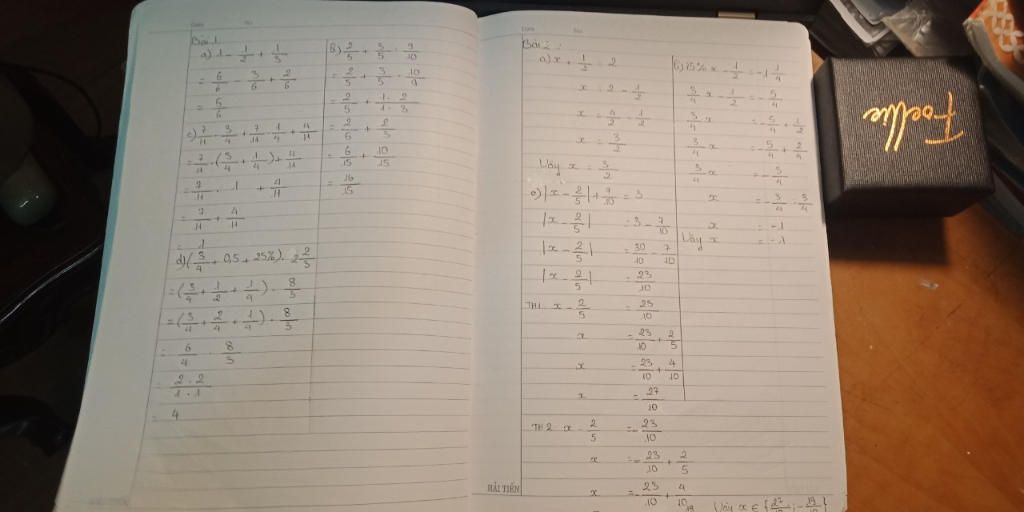 Bài 1
a) 1 - 1/2 + 1/3
= 6/6 - 3/6 + 2/6
= 5/6
c) 7/11 . 3/4 + 7/11 . 1/4 + 4/11
= 7/11 . (3/4 + 1/4) + 4/11
= 7/11 . 1 + 4/11
= 7/11 + 4/11
= 1
d) (3/4 + 0,5 + 25%) . 2 2/3
= (3/4 + 1/2 + 1/4) . 8/3
= (3/4 + 2/4 + 1/4) . 8/3
= 6/4 . 8/3
= 2 . 2/1 . 1
= 4
b) 2/5 + 3/5 : 9/10
= 2/5 + 3/5 . 10/9
= 2/5 + 1 . 2/1 . 3
= 2/5 + 2/3
= 6/15 + 10/15
= 16/15
Bài 2:
a) x + 1/2 = 2
x = 2 - 1/2
x = 4/2 - 1/2
x = 3/2
Vậy x = 3/2
c) |x - 2/5| + 7/10 = 3
|x - 2/5| = 3 - 7/10
|x - 2/5| = 30/10 - 7/10
|x - 2/5| = 23/10
TH1: x - 2/5 = 23/10
x = 23/10 + 2/5
x = 23/10 + 4/10
x = 27/10
TH2: x - 2/5 = -23/10
x = -23/10 + 2/5
x = -23/10 + 4/10
Vậy x ∈ {27/10; -19/10}
b) 75% x - 1/2 = -1 1/4
3/4 x - 1/2 = -5/4
3/4 x = -5/4 + 1/2
3/4 x = -5/4 + 2/4
3/4 x = -3/4
x = -3/4 : 3/4
x = -1
Vậy x = -1
HẢI TIẾN
Foellie